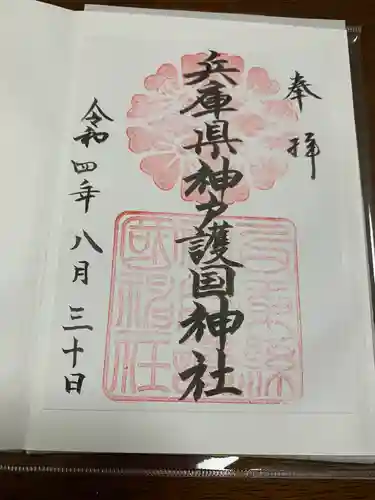 奉拝
兵庫県神戸護国神社
令和四年八月三十日